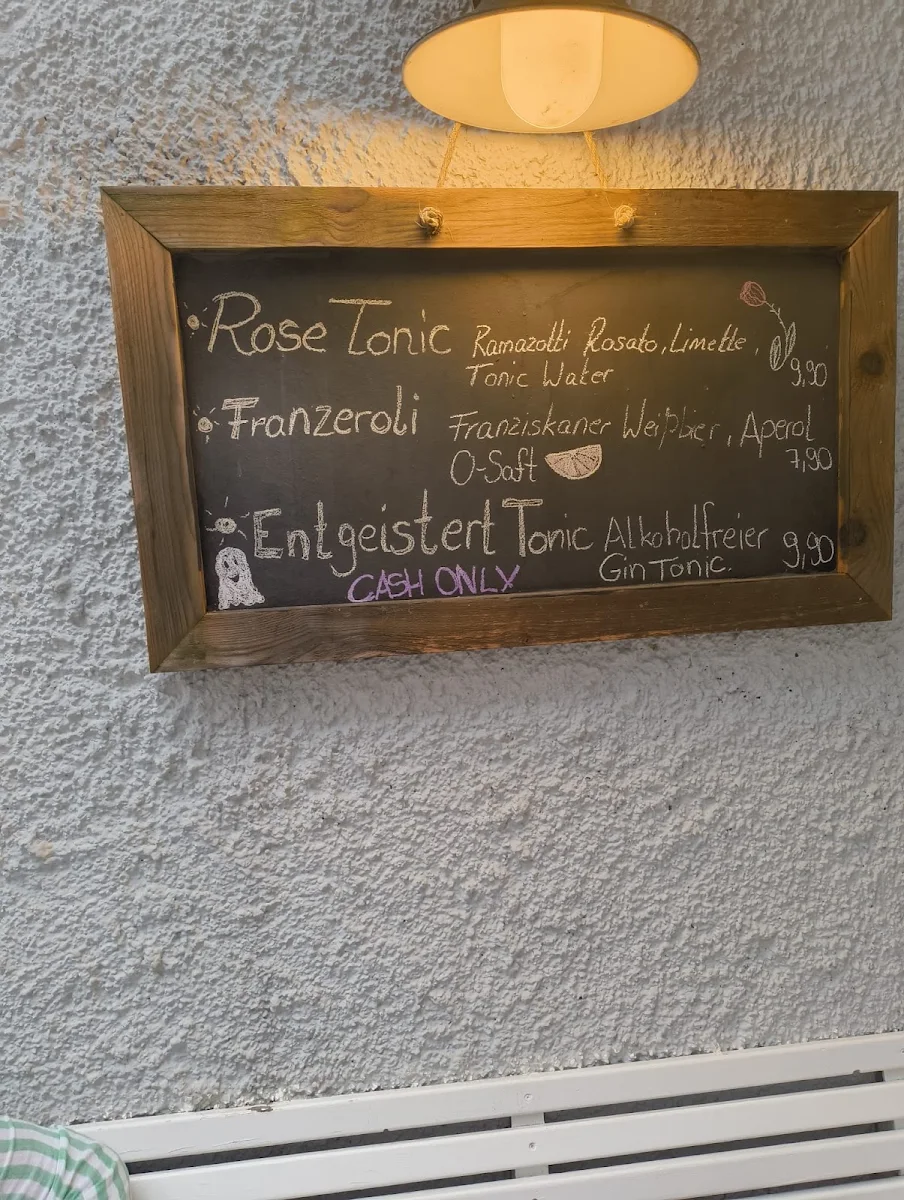 Rose Tonic Ramazotti Rosato, Limette,
Tonic Water 9,90
Franzeroli Franziskaner Weißbier, Aperol
O-Saft 7,90
Entgeistert Tonic Alkoholfreier
Gin Tonic. 9,90
CASH ONLY